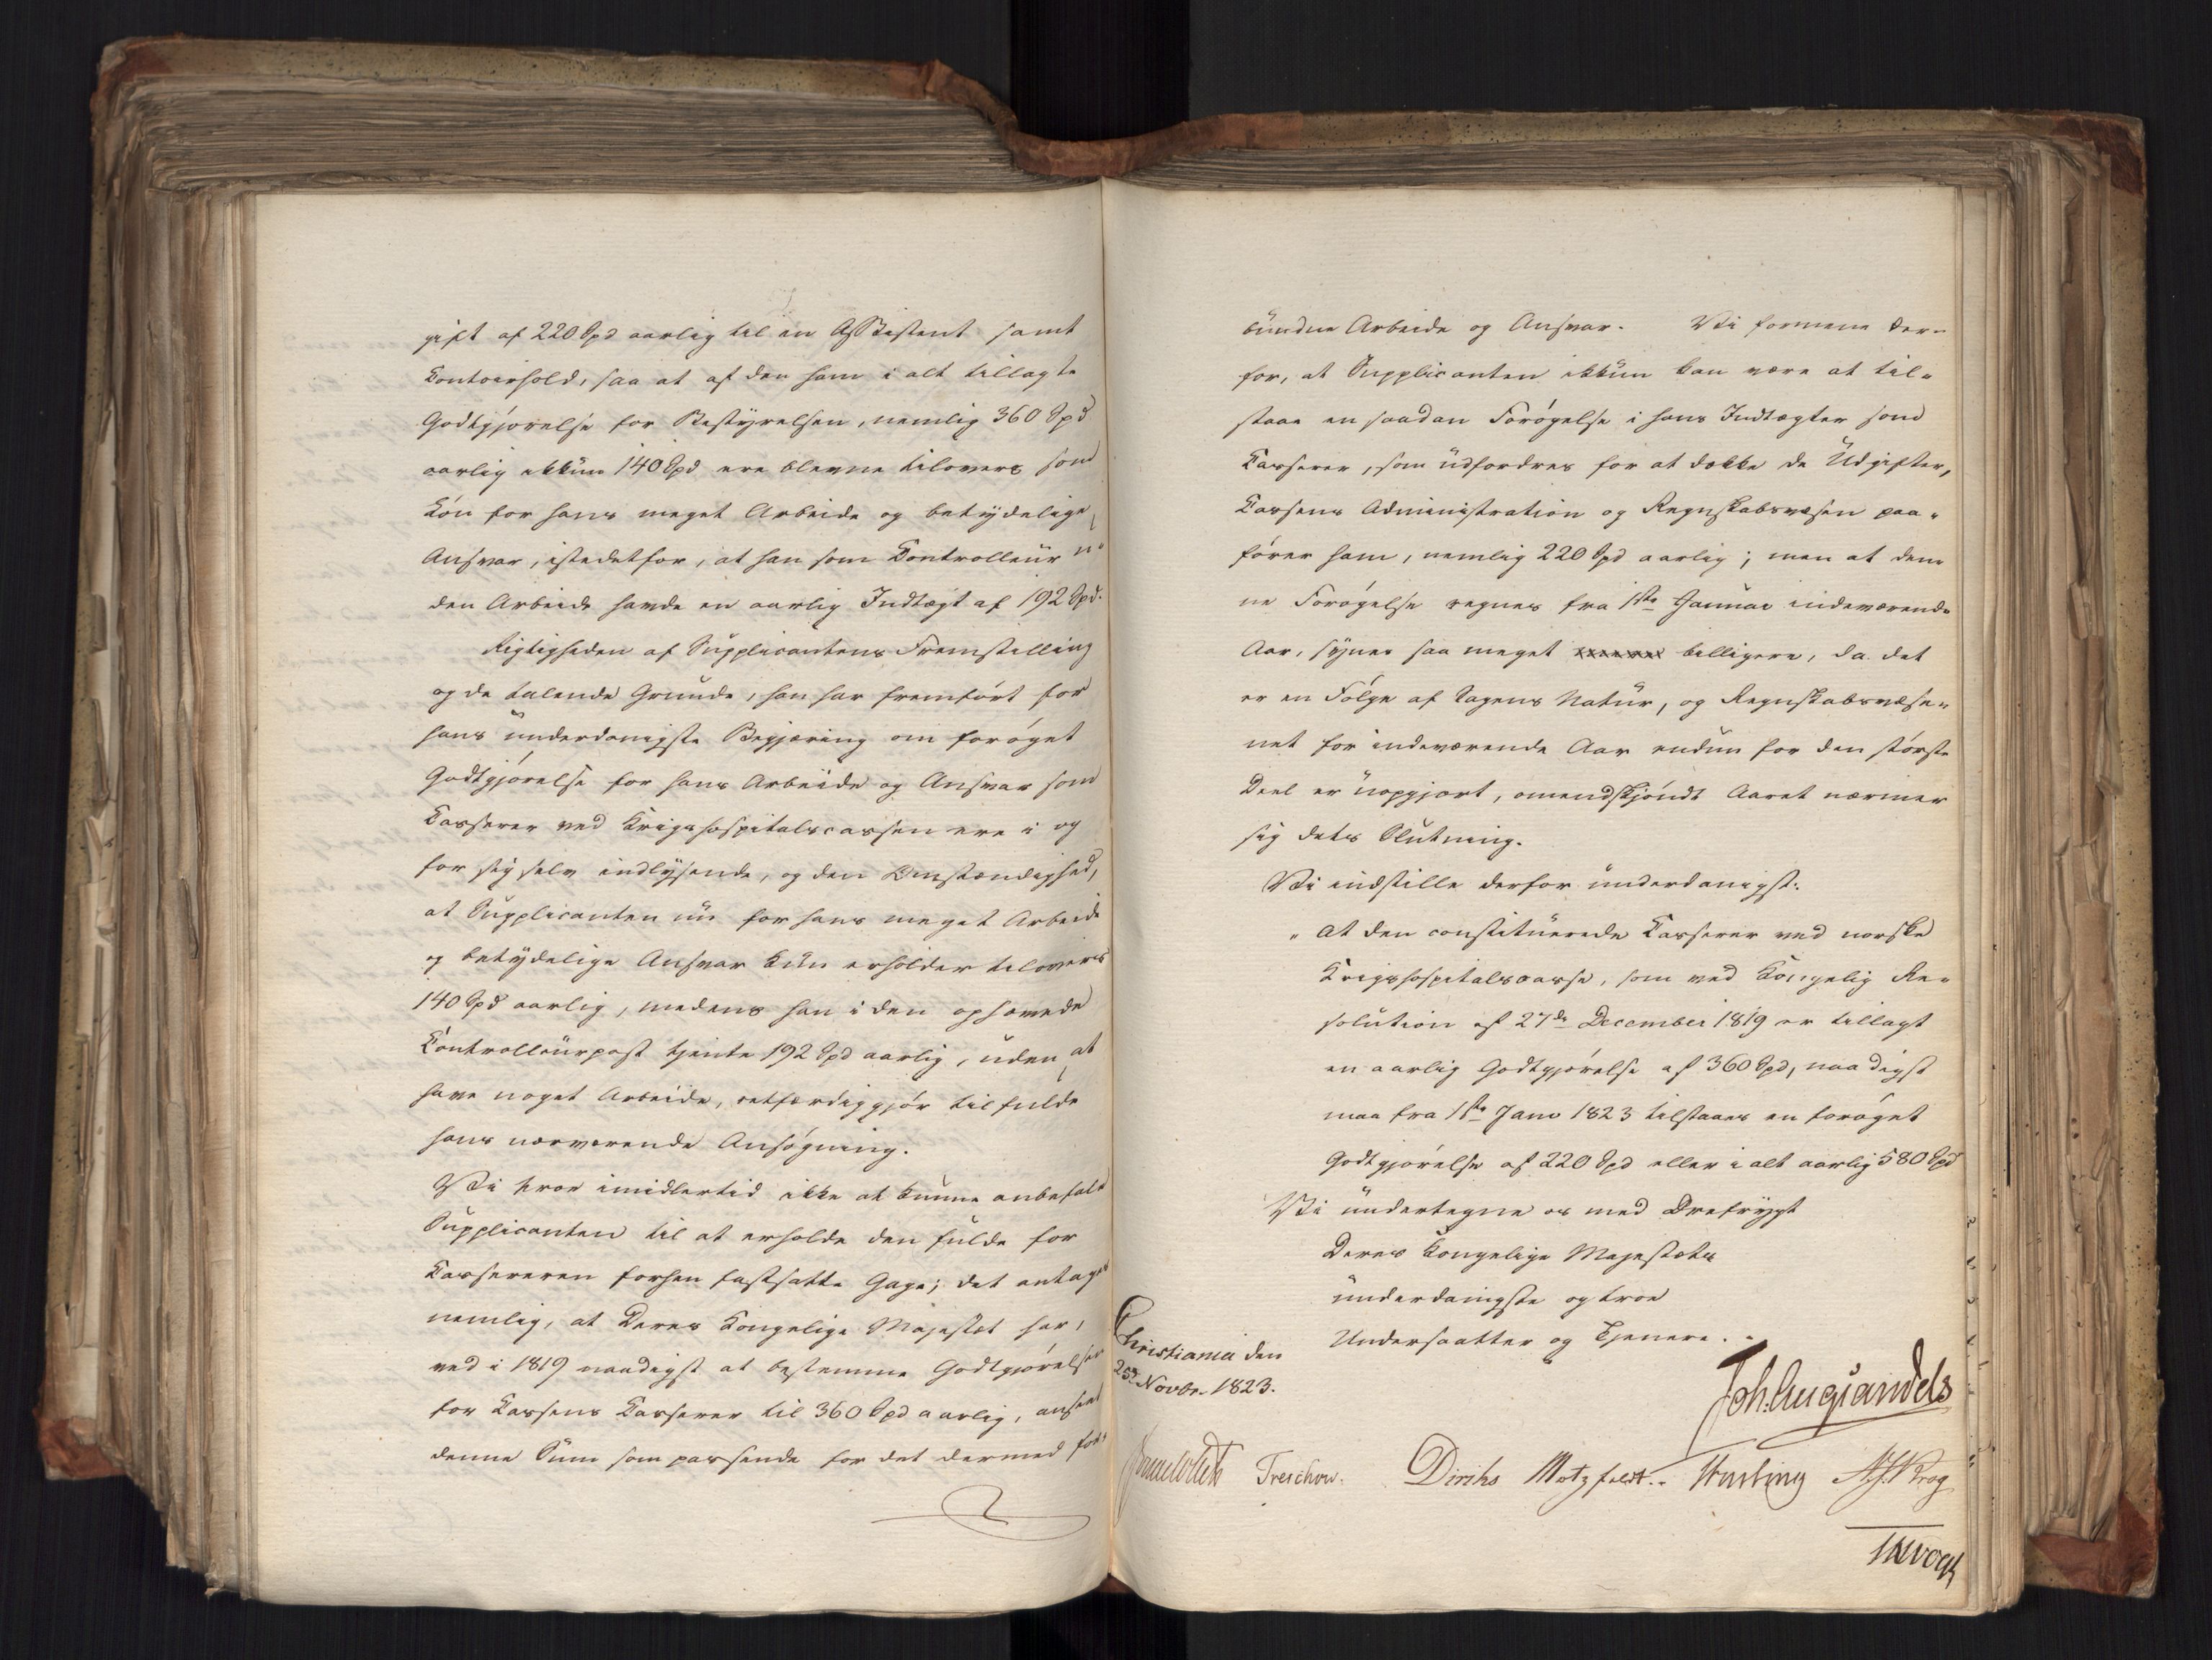 gift af 220 Spd aarlig til en Assistent samt
Contoirhold, saa at af den ham i alt tillagte
Godtgjørelse for Bestyrelsen, nemlig 360 Spd
aarlig ikkun 140 Spd ere blevne tilovers som
Løn for hans meget Arbeide og betydelige
Ansvar, istedetfor, at han som Controlleur u-
den Arbeide havde en aarlig Indtægt af 192 Spd.
Rigtigheden af Supplicantens Fremstilling
og de talende Grunde, han har fremført for
hans underdanigste Begjæring om forøget
Godtgjørelse for hans Arbeide og Ansvar som
Casserer ved Krigshospitalscassen ere i og
for sig selv indlysende, og den Omstændighed,
at Supplicanten nu for hans meget Arbeide
og betydelige Ansvar kun erholder tilovers
140 Spd aarlig, medens han i den ophævede
Controlleurpost tjente 192 Spd aarlig, uden at
have noget Arbeide, retfærdiggjør til fulde
hans nærværende Ansøgning.
Vi troe imidlertid ikke at kunne anbefale
Supplicanten til at erholde den fulde for
Cassereren forhen fastsatte Gage; det antages
nemlig, at Deres Kongelige Majestæt har,
ved i 1819 naadigst at bestemme Godtgjørelsen
for Cassens Casserer til 360 Spd aarlig, anseet
denne Sum som passende for det dermed for-
bundne Arbeide og Ansvar. Vi formene der-
for, at Supplicanten ikkun kan være at til-
staae en saadan Forøgelse i hans Indtægter som
Casserer, som udfordres for at dække de Udgifter,
Cassens Administration og Regnskabsvæsen paa-
fører ham, nemlig 220 Spd aarlig; men at den-
ne Forøgelse regnes fra 1ste Januar indeværende
Aar, synes saa meget billigere, da det
er en Følge af Sagens Natur, og Regnskabsvæse-
net for indeværende Aar endnu for den største
Deel er uopgjort, omendskjøndt Aaret nærmer
sig dets Slutning.
Vi indstille derfor underdanigst:
"At den constituerede Casserer ved norske
Krigshospitalscasse, som ved Kongelig Re-
solution af 27de December 1819 er tillagt
en aarlig Godtgjørelse af 360 Spd, naadigst
maa fra 1ste Janv 1823 tilstaaes en forøget
Godtgjørelse af 220 Spd eller i alt aarlig 580 Spd
Vi undertegne os med Ærefrygt
Deres Kongelige Majestæts
underdanigste og troe
Undersaatter og Tjenere.
Christiania den
25de Novbr. 1823.
Joh. Aug Sandels
Sommerhielm Treschow. Diriks Motzfeldt. Hutling N. J. Krog
JHVogt